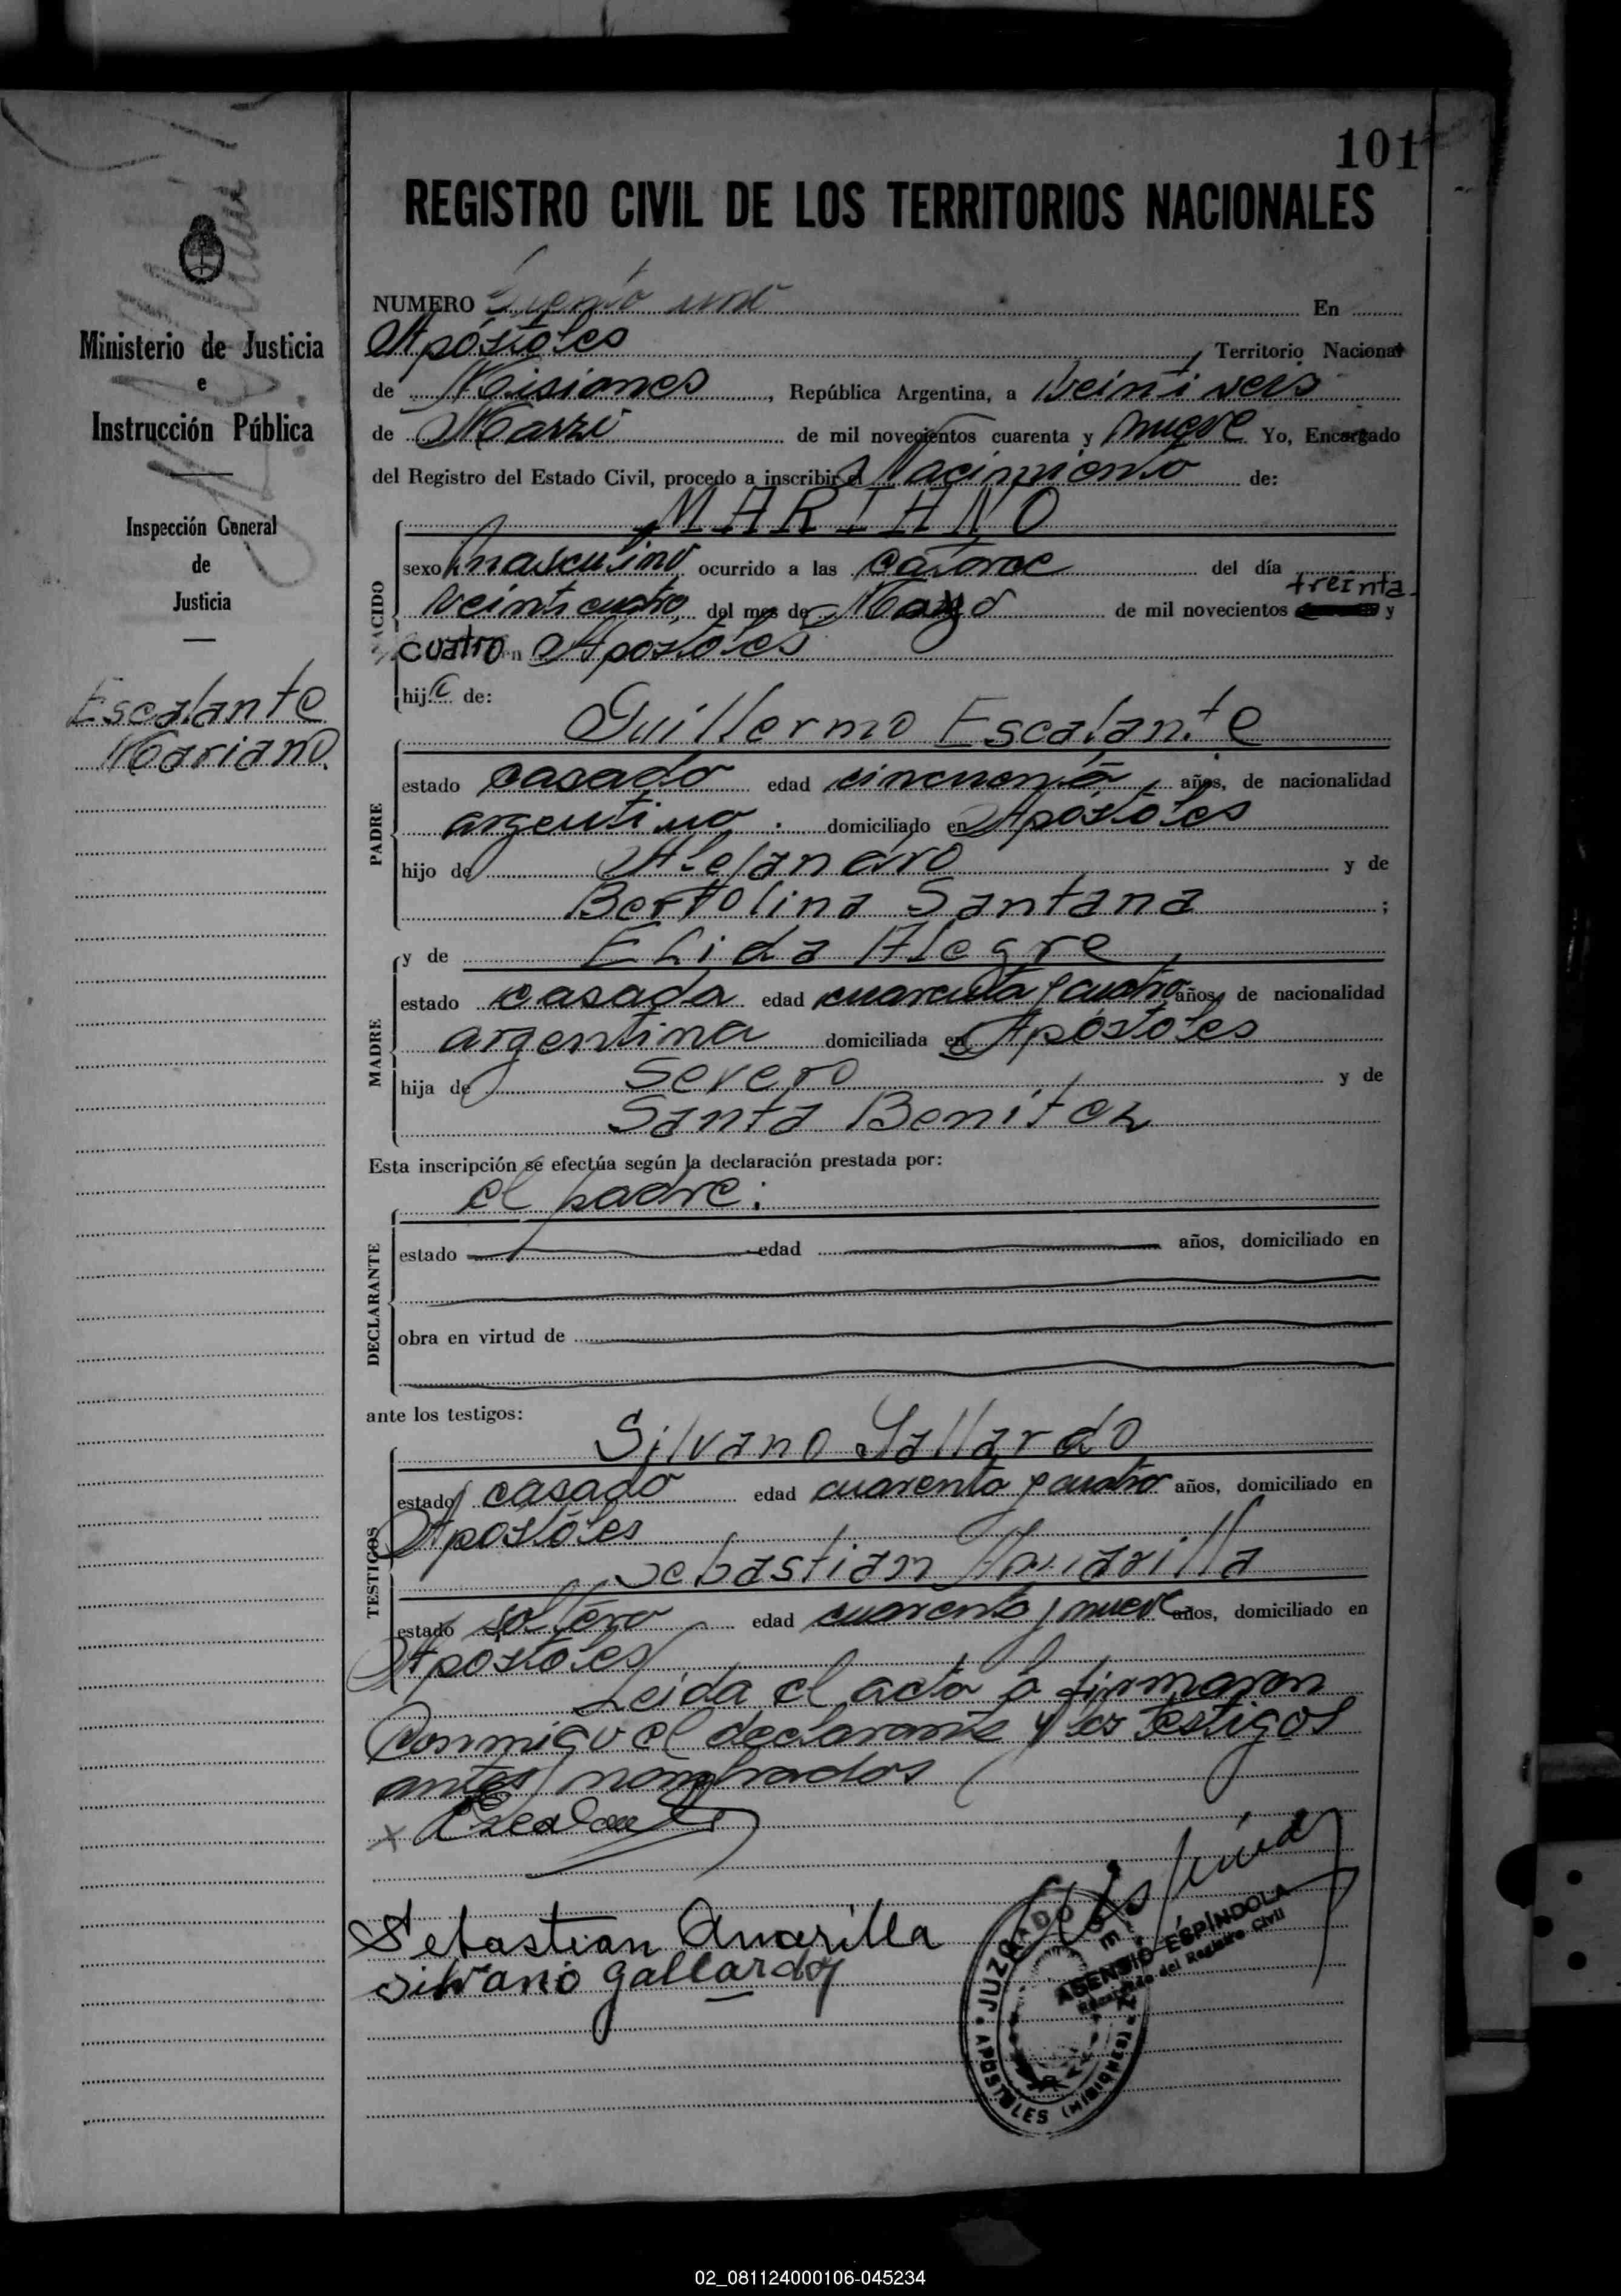 101
REGISTRO CIVIL DE LOS TERRITORIOS NACIONALES
Ministerio de Justicia
e
Instrucción Pública
Inspección General
de
Justicia
Escalante
Mariano.
NUMERO Ciento uno En
Apóstoles, Territorio Nacional
de Misiones, República Argentina, a Veintiseis
de Marzo de mil novecientos cuarenta y nueve Yo, Encargado
del Registro del Estado Civil, procedo a inscribir el Nacimiento de:
MARIANO
NACIDO
sexo masculino ocurrido a las catorce del día
treinta
veinticuatro del mes de de mil novecientos y
cuatro en Apóstoles
hijo de:
Guillermo Escalante
PADRE
estado casado edad cincuenta, años, de nacionalidad
argentino. domiciliado en Apóstoles
hijo de Alejandro y de
Bertolina Santana ;
MADRE
y de Elida Alegre,
estado casada edad cuarenta y cuatro años, de nacionalidad
argentina domiciliada en Apóstoles
hija de Severo y de
Santa Benitez
Esta inscripción se efectúa según la declaración prestada por:
el padre:
DECLARANTE
estado edad años, domiciliado en
obra en virtud de
ante los testigos:
TESTIGOS
Silvano Gallardo
estado casado edad cuarenta y cuatro años, domiciliado en
Apóstoles
Sebastian Amarilla
estado soltero edad cuarenta y nueve años, domiciliado en
Apóstoles
Leida el acta firmaron
conmigo el declarante y los testigos
antes nombrados
x Escalante
Sebastian Amarilla
Silvano Gallardo
JUZGADO
ASENSIO ESPÍNDOLA
Encargado del Registro Civil
APOSTOLES (MISIONES)
02_081124000106-045234